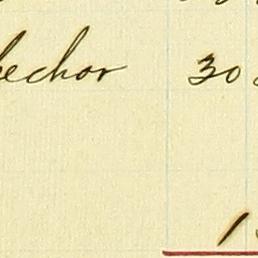 echor 30
1